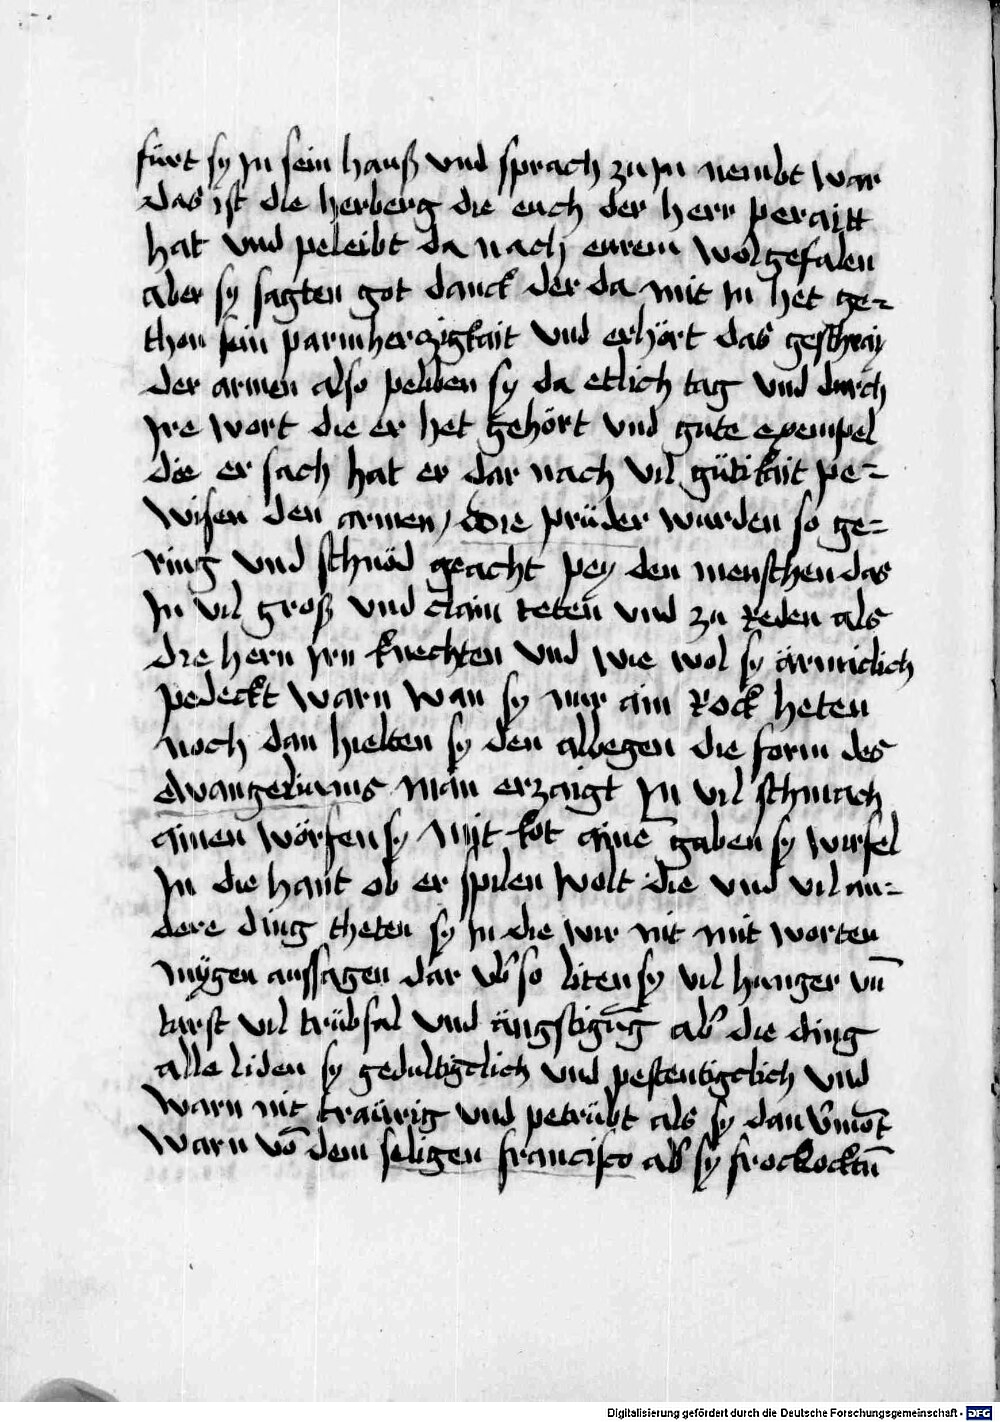 fürt sy Jn sein hauß vnd sprach zu Jn nembt war
das ist die herberg die euch der herr peraitt
hat vnd peleibt da nach eurem wolgefalen
aber sy sagten got danck der da mit Jn het ge=
thon sein parmherczigkait vnd erhört das geschray
der armen also peliben sy da etlich tag vnd durch
Jre wort die er het gehört vnd gute exempel
die er sach hat er dar nach vil gütikait pe=
wisen den armen / Die prüder wurden so ge=
ring vnd schnöd geacht pey den menschen das
Jn vil groß vnd clain teten vnd zu Reden als
die hern Jrn knechten vnd wie wol sy ärmiclich
pedeckt warn wan sy nur ain Rock heten
noch dan hielten sy den allwegen die form des
ewangeliums man erzaigt Jn vil schmach
ainen wörfen sy mit kot aine̅ gaben sy wirfel
Jn die hant ob er spilen wolt die vnd vil an=
dere ding theten sy Jn die wir nit mit worten
mÿgen aussagen dar vb̾ so liten sy vil hunger vn̅
turst vil trübsal vnd ängstigu̅g ab̾ die ding
alle liden sy gedultigclich vnd pestentigclich vnd
warn nit traürig vnd petrübt als sy dan v̾mo̅t
warn vo̅ dem seligen francisco ab̾ sy frockockt̅n
Digitalisierung gefördert durch die Deutsche Forschungsgemeinschaft - DFG